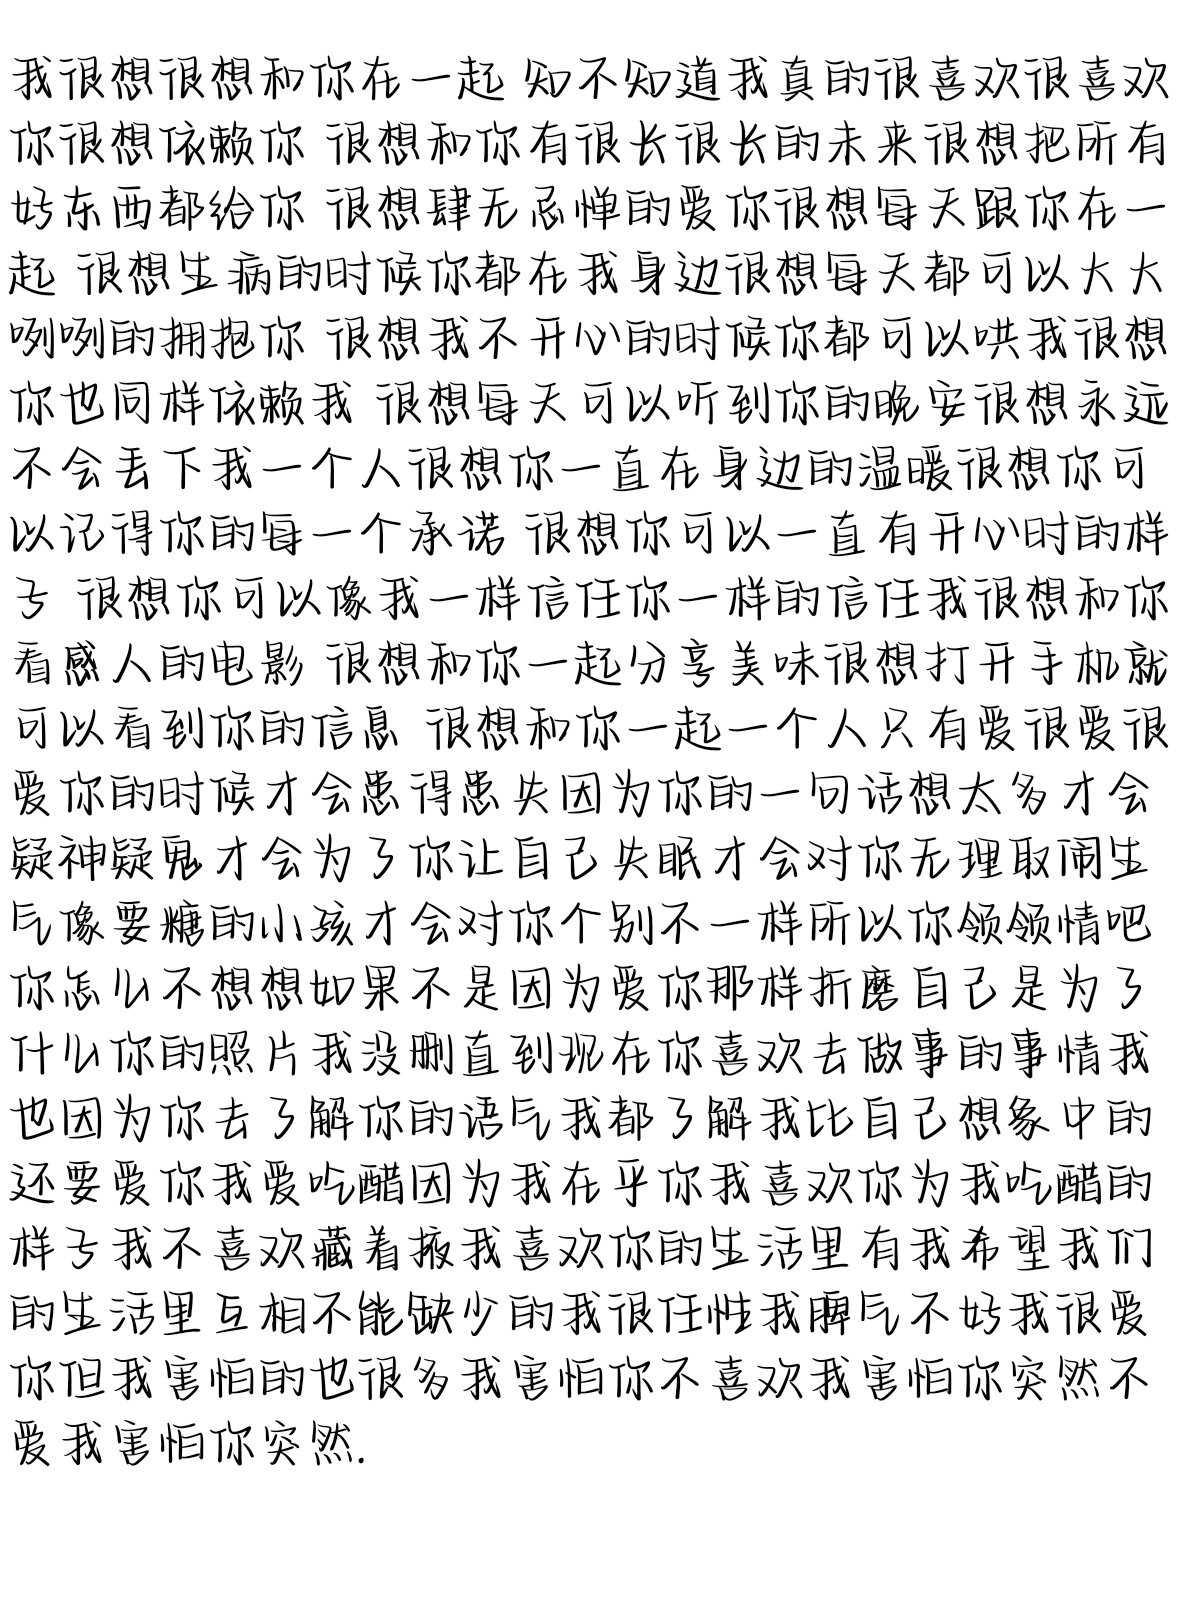 我很想很想和你在一起 知不知道我真的很喜欢很喜欢
你很想依赖你 很想和你有很长很长的未来很想把所有
好东西都给你 很想肆无忌惮的爱你很想每天跟你在一
起 很想生病的时候你都在我身边很想每天都可以大大
咧咧的拥抱你 很想我不开心的时候你都可以哄我很想
你也同样依赖我 很想每天可以听到你的晚安很想永远
不会丢下我一个人很想你一直在身边的温暖很想你可
以记得你的每一个承诺 很想你可以一直有开心时的样
子 很想你可以像我一样信任你一样的信任我很想和你
看感人的电影 很想和你一起分享美味很想打开手机就
可以看到你的信息 很想和你一起一个人只有爱很爱很
爱你的时候才会患得患失因为你的一句话想太多才会
疑神疑鬼才会为了你让自己失眠才会对你无理取闹生
气像要糖的小孩才会对你个别不一样所以你领领情吧
你怎么不想想如果不是因为爱你那样折磨自己是为了
什么你的照片我没删直到现在你喜欢去做事的事情我
也因为你去了解你的语气我都了解我比自己想象中的
还要爱你我爱吃醋因为我在乎你我喜欢你为我吃醋的
样子我不喜欢藏着掖我喜欢你的生活里有我希望我们
的生活里互相不能缺少的我很任性我脾气不好我很爱
你但我害怕的也很多我害怕你不喜欢我害怕你突然不
爱我害怕你突然.